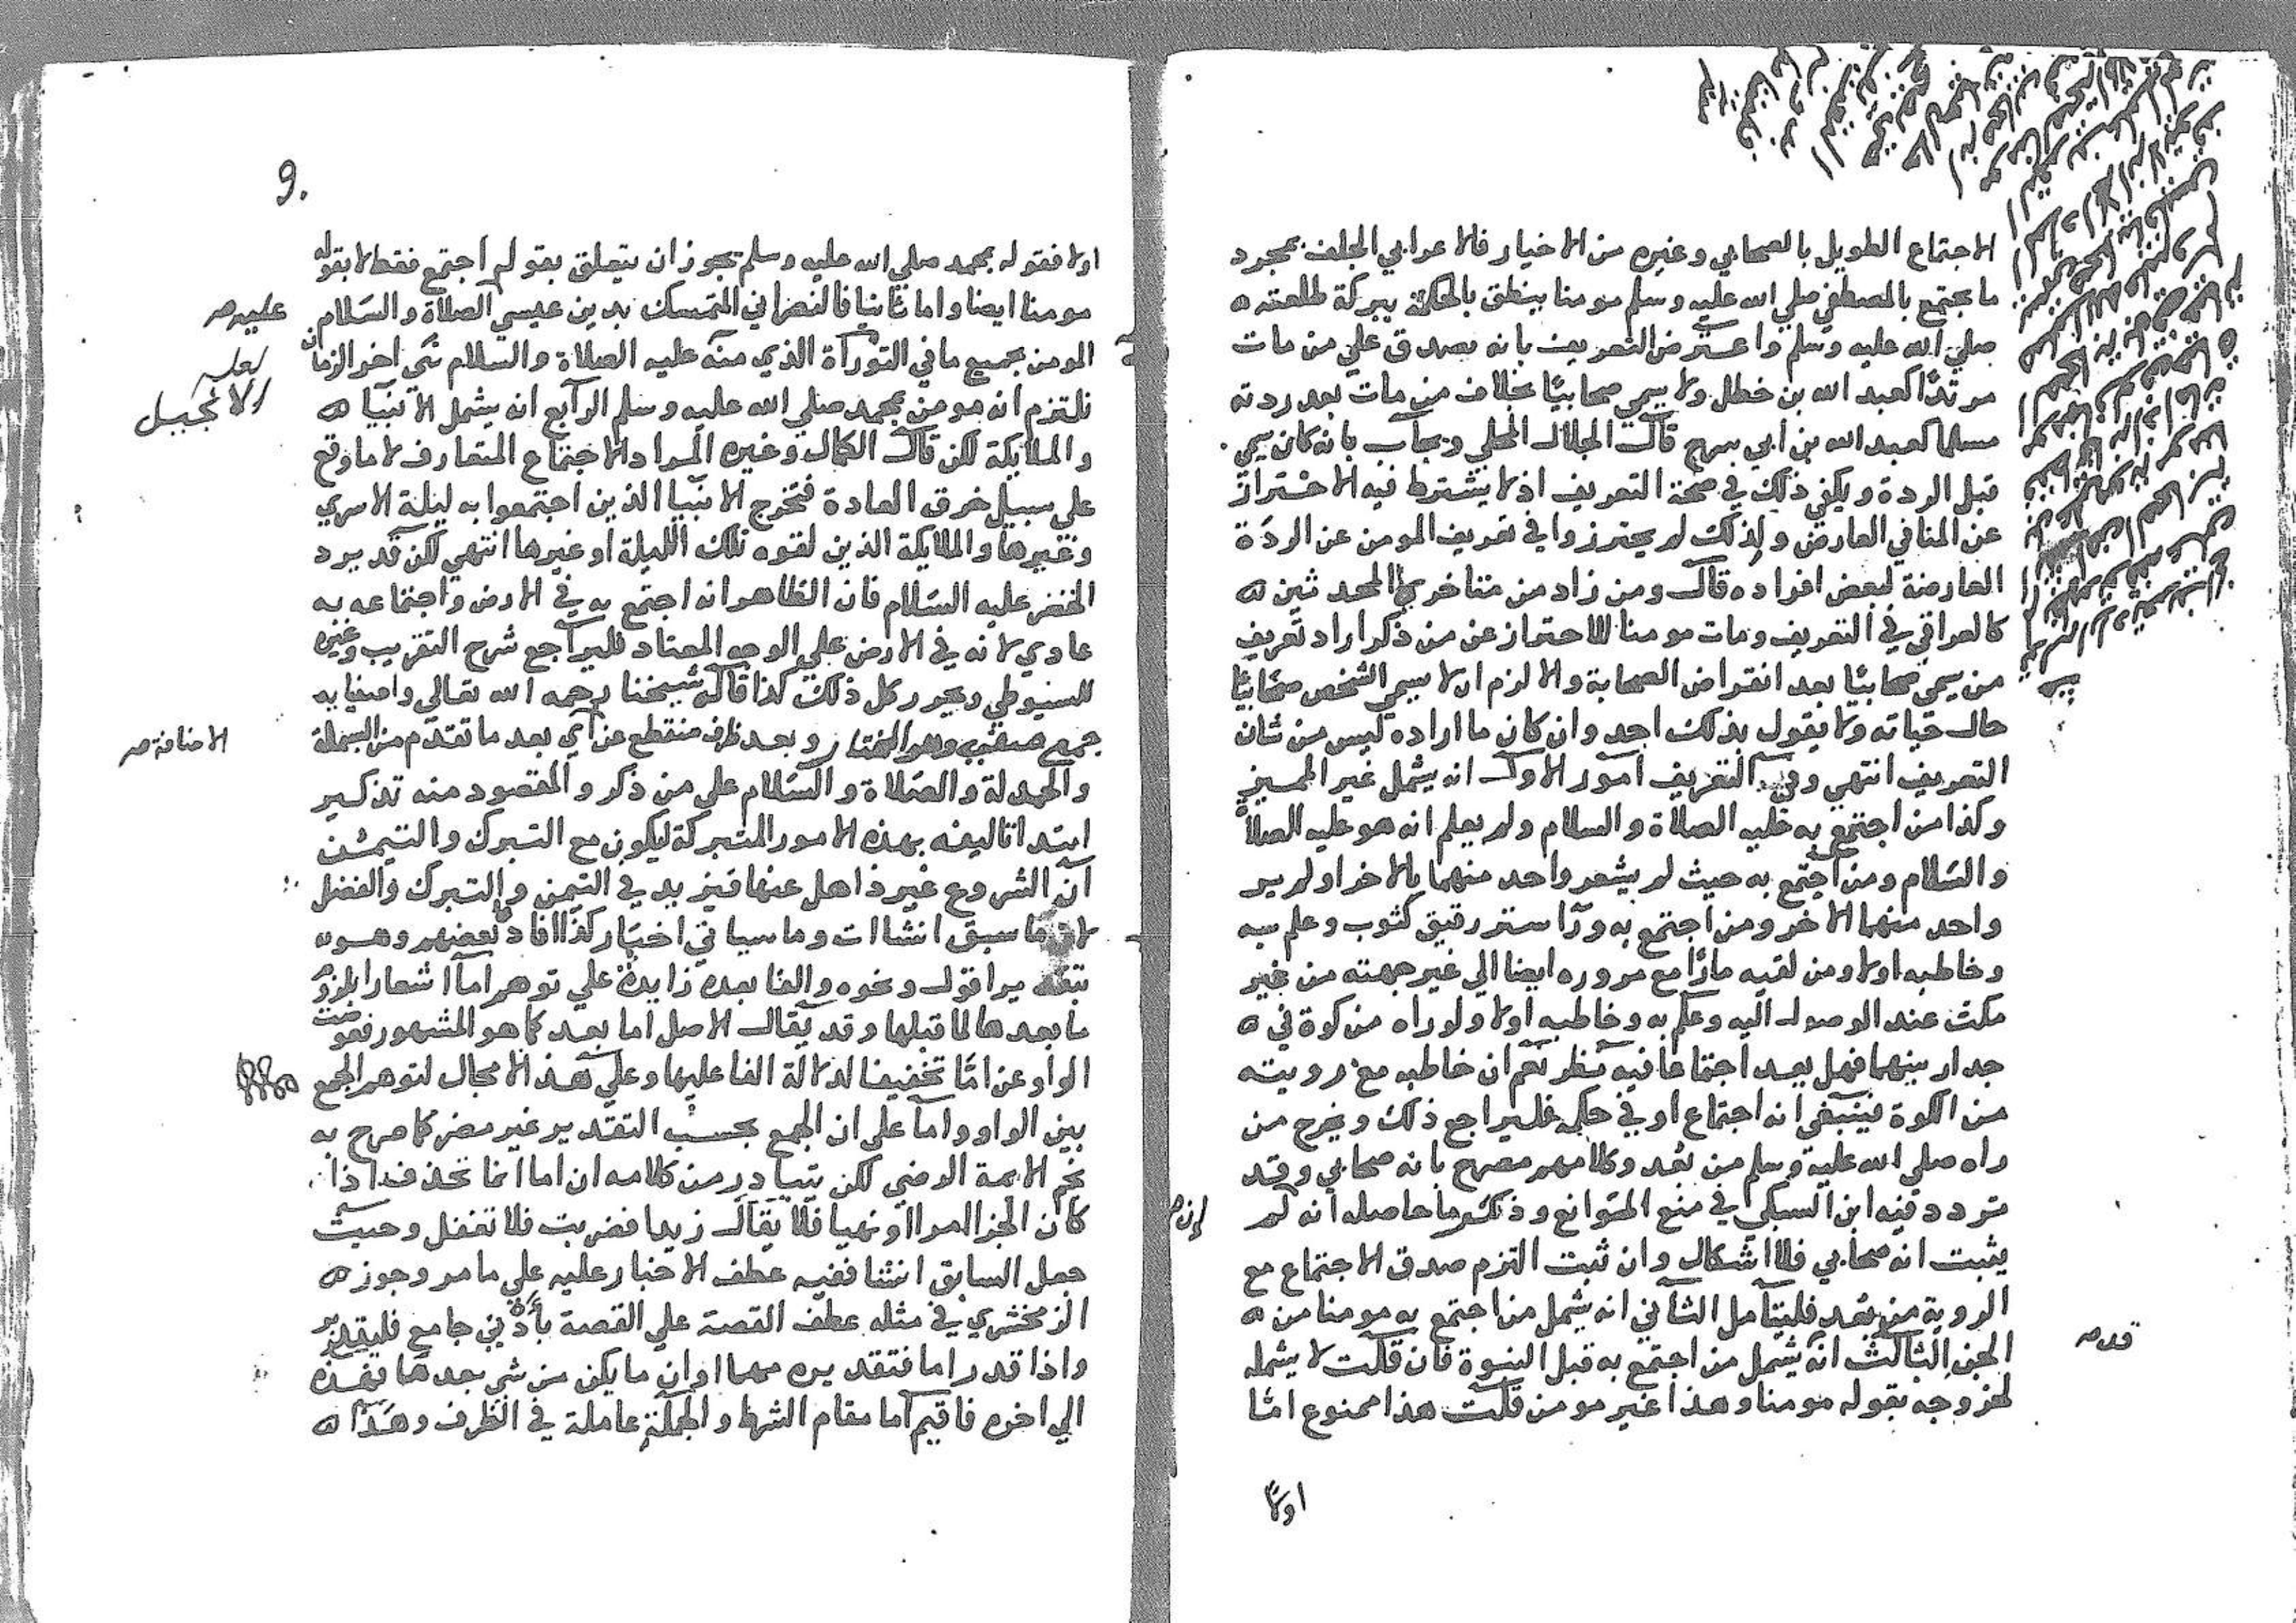 الاجتماع الطويل بالصحابي وغيره من الاخيار فالاعرابي الجلف بمجرد
ما يجتمع بالمصطفي صلي الله عليه وسلم مومنا ينطق بالحكمة ببركة طلعته
صلي الله عليه وسلم واعترض التعريف بانه يصدق علي من مات
مرتدًا كعبد الله بن خطل ولا يسمي صحابيًا بخلاف من مات بعد ردته
مسلما كعبد الله بن أبي سرح قال الجلال المحلي ويجاب بانه كان يسمي
قبل الردة ويكفي ذلك في صحة التعريف اذ لا يشترط فيه الاحتراز
عن المنافي العارض ولذلك لم يحترزوا في تعريف المومن عن الردة
العارضة لبعض افراده قال ومن زاد من متاخري المحدثين
كالعراقي في التعريف ومات مومنا للاحتراز عن من ذكر اراد تعريف
من يسمي صحابيًا بعد انقراض الصحابة والا لزم ان لا يسمي الشخص صحابيًا
حال حياته ولا يقول بذلك احد وان كان ما اراده ليس من شان
التعريف انتهي وفي التعريف امور الاول انه يشمل غير المميز
وكذا من اجتمع به عليه الصلاة والسلام ولم يعلم انه هو عليه الصلاة
والسلام ومن اجتمع به حيث لم يشعر واحد منهما بالاخر او لم ير
واحد منهما الاخر ومن اجتمع به ورآ ستر رقيق كثوب وعلم به
وخاطبه اولا ومن لقيه مارًا مع مروره ايضا الي غير جهته من غير
مكث عند الوصول اليه وعلم به وخاطبه اولا ولو راه من كوة في
جدار بينهما فهل يعد اجتماعا فيه نظر نعم ان خاطبه مع رويته
من الكوة فينبغي انه اجتماع او في حكمه فليراجع ذلك ويخرج من
راه صلي الله عليه وسلم من بُعد وكلامهم مصرح بانه صحابي وقد
تردد فيه ابن السبكي في منع الموانع وذكر ما حاصله انه لم
إن
يثبت انه صحابي فلا اشكال وان ثبت التزم صدق الاجتماع مع
الروية من بُعد فليتامل الثاني انه يشمل من اجتمع به مومنا من
الجن الثالث انه يشمل من اجتمع به قبل النبوة فان قلت لا يشمله
لخروجه بقوله مومنا وهذا غير مومن قلت هذا ممنوع امّا
اولًا
9.
اولا فقوله بمحمد صلي الله عليه وسلم يجوز ان يتعلق بقولم اجتمع فقط لا بقوله
مومنا ايضا واما ثانيا فالنصراني المتمسك بدين عيسي الصلاة والسلام
عليه
المومن بجميع ما في التوراة الذي منه عليه الصلاة والسلام نبي اخر الزمان
لعله
الانجيل
نلتزم انه مومن بمحمد صلي الله عليه وسلم الرابع انه يشمل الانبيا
والملائكة لكن قال الكمال وغيره المراد الاجتماع المتعارف لا ما وقع
علي سبيل خرق العادة فتخرج الانبيا الذين اجتمعوا به ليلة الاسري
وغيرها والملايكة الذين لقوه تلك الليلة او غيرها انتهي لكن قد يرد
الخضر عليه السلام فان الظاهر انه اجتمع به في الارض واجتماعه به
عادي لانه في الارض علي الوجه المعتاد فليراجع شرح التقريب وغيره
للسيوطي ويحرر كل ذلك كذا قاله شيخنا رحمه الله تعالي واصفيايه
جمع صفي وهو المختار وبعد ظرف منقطع عن اي بعد ما تقدم من البسملة
الاضافة
والحمدلة والصلاة والسلام علي من ذكر والمقصود منه تذكير
ابتدا تاليفه بهذه الامور المتبركة ليكون مع التبرك والتيمن
آن الشروع غير ذاهل عنها فيزيد في التيمن والتبرك والفضل
ما سبق انشاات وما سياتي اخبار كذا افاد بعضهم وهو
يراقول ونحوه والفا بعده زايدة علي توهم اما اشعارا بلزوم
ما بعدها لما قبلها وقد يقال الاصل اما بعد كما هو المشهور فعوضت
الواو عن امّا تخفيفا لدلالة الفا عليها وعلي هذا لا مجال لتوهم الجمع
بين الواو واما علي ان الجمع بحسب التقدير غير مضر كما صرح به
نجم الايمة الرضي لكن يتبادر من كلامه ان اما انما تحذف اذا
كان الجزا امرا او نهيا فلا يقال زيدا فضربت فلا تغفل وحيث
جعل السابق انشا ففيه عطف الاخبار عليه علي ما مر وجوز
الزمخشري في مثله عطف القصة علي القصة بأدني جامع فليتدبر
واذا قدر اما فتقديره مهما او ان ما يكن من شي بعد
الي اخره فاقيم اما مقام الشرط والجملة عاملة في الظرف وهذا